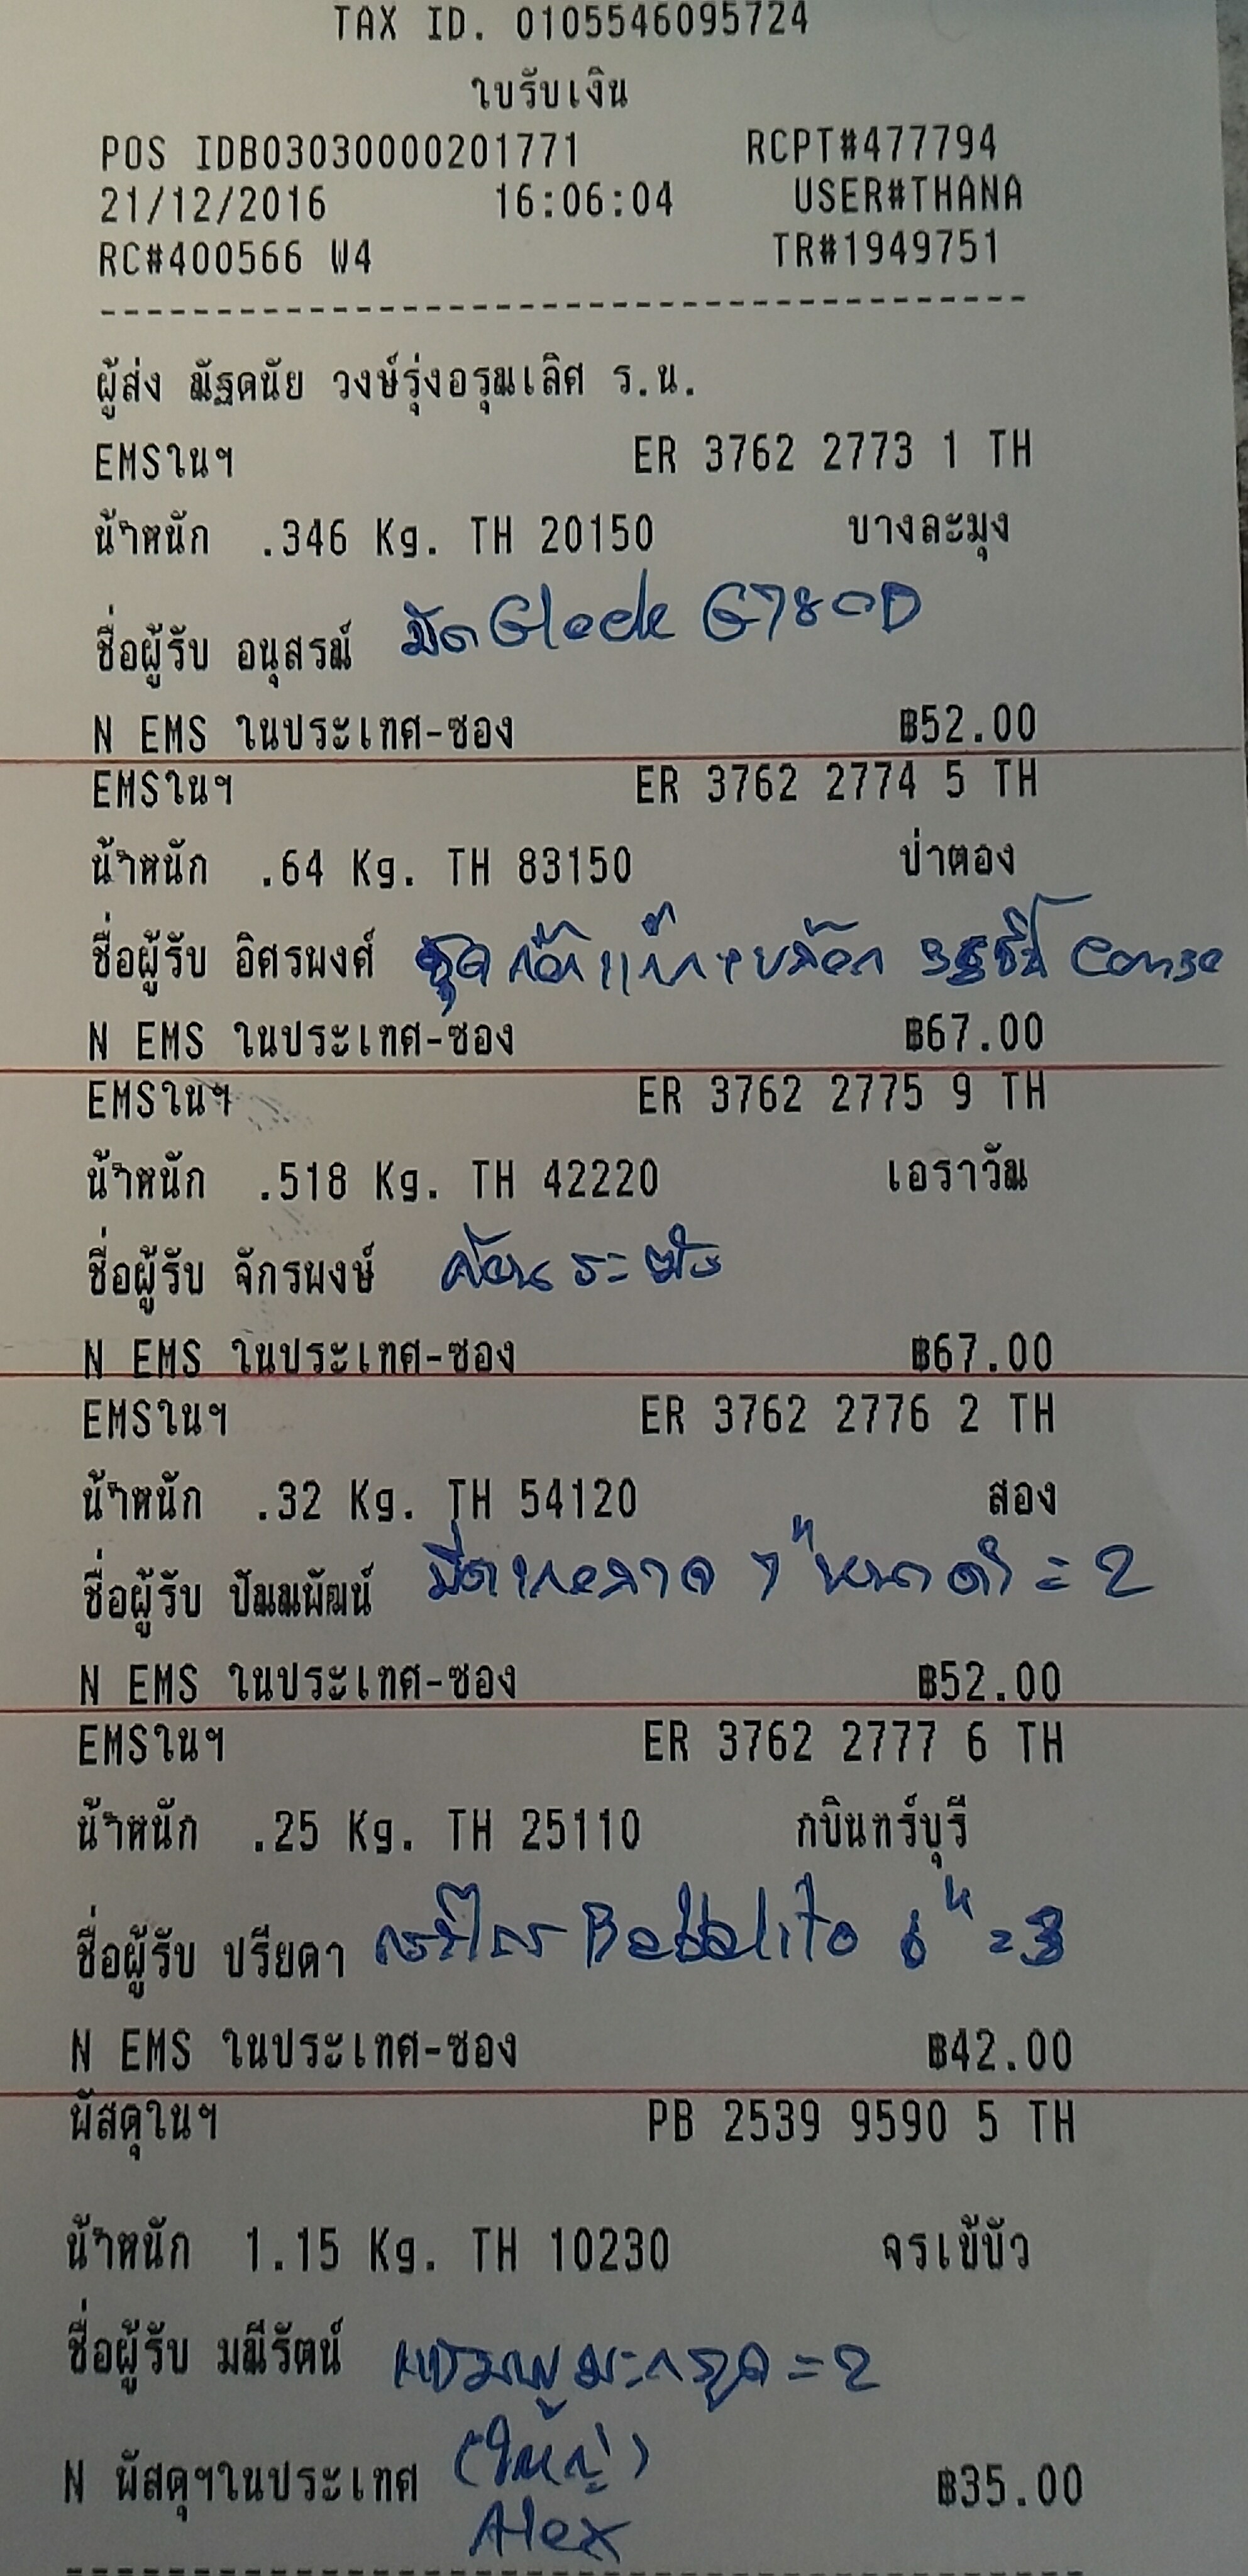 TAX ID. 0105546095724
ใบรับเงิน
POS IDB03030000201771 RCPT#477794
21/12/2016 16:06:04 USER#THANA
RC#400566 W4 TR#1949751
ผู้ส่ง ณัฐดนัย วงษ์รุ่งอรุณเลิศ ร.น.
EMSในฯ ER 3762 2773 1 TH
น้ำหนัก .346 Kg. TH 20150 บางละมุง
ชื่อผู้รับ อนุสรณ์ มีด Glock G78 OD
N EMS ในประเทศ-ซอง ฿52.00
EMSในฯ ER 3762 2774 5 TH
น้ำหนัก .64 Kg. TH 83150 ป่าตอง
ชื่อผู้รับ อิศรพงศ์ ชุด
N EMS ในประเทศ-ซอง ฿67.00
EMSในฯ ER 3762 2775 9 TH
น้ำหนัก .518 Kg. TH 42220 เอราวัณ
ชื่อผู้รับ จักรพงษ์ ค้อน ระฆัง
N EMS ในประเทศ-ซอง ฿67.00
EMSในฯ ER 3762 2776 2 TH
น้ำหนัก .32 Kg. TH 54120 สอง
ชื่อผู้รับ ปัณณพัฒน์ มีด 7" ดำ = 2
N EMS ในประเทศ-ซอง ฿52.00
EMSในฯ ER 3762 2777 6 TH
น้ำหนัก .25 Kg. TH 25110 กบินทร์บุรี
ชื่อผู้รับ ปรียดา กรรไกร 6" = 3
N EMS ในประเทศ-ซอง ฿42.00
พัสดุในฯ PB 2539 9590 5 TH
น้ำหนัก 1.15 Kg. TH 10230 จรเข้บัว
ชื่อผู้รับ มณีรัตน์ แชมพูมะกรูด = 2
(ใหญ่)
N พัสดุฯในประเทศ ฿35.00
Alex